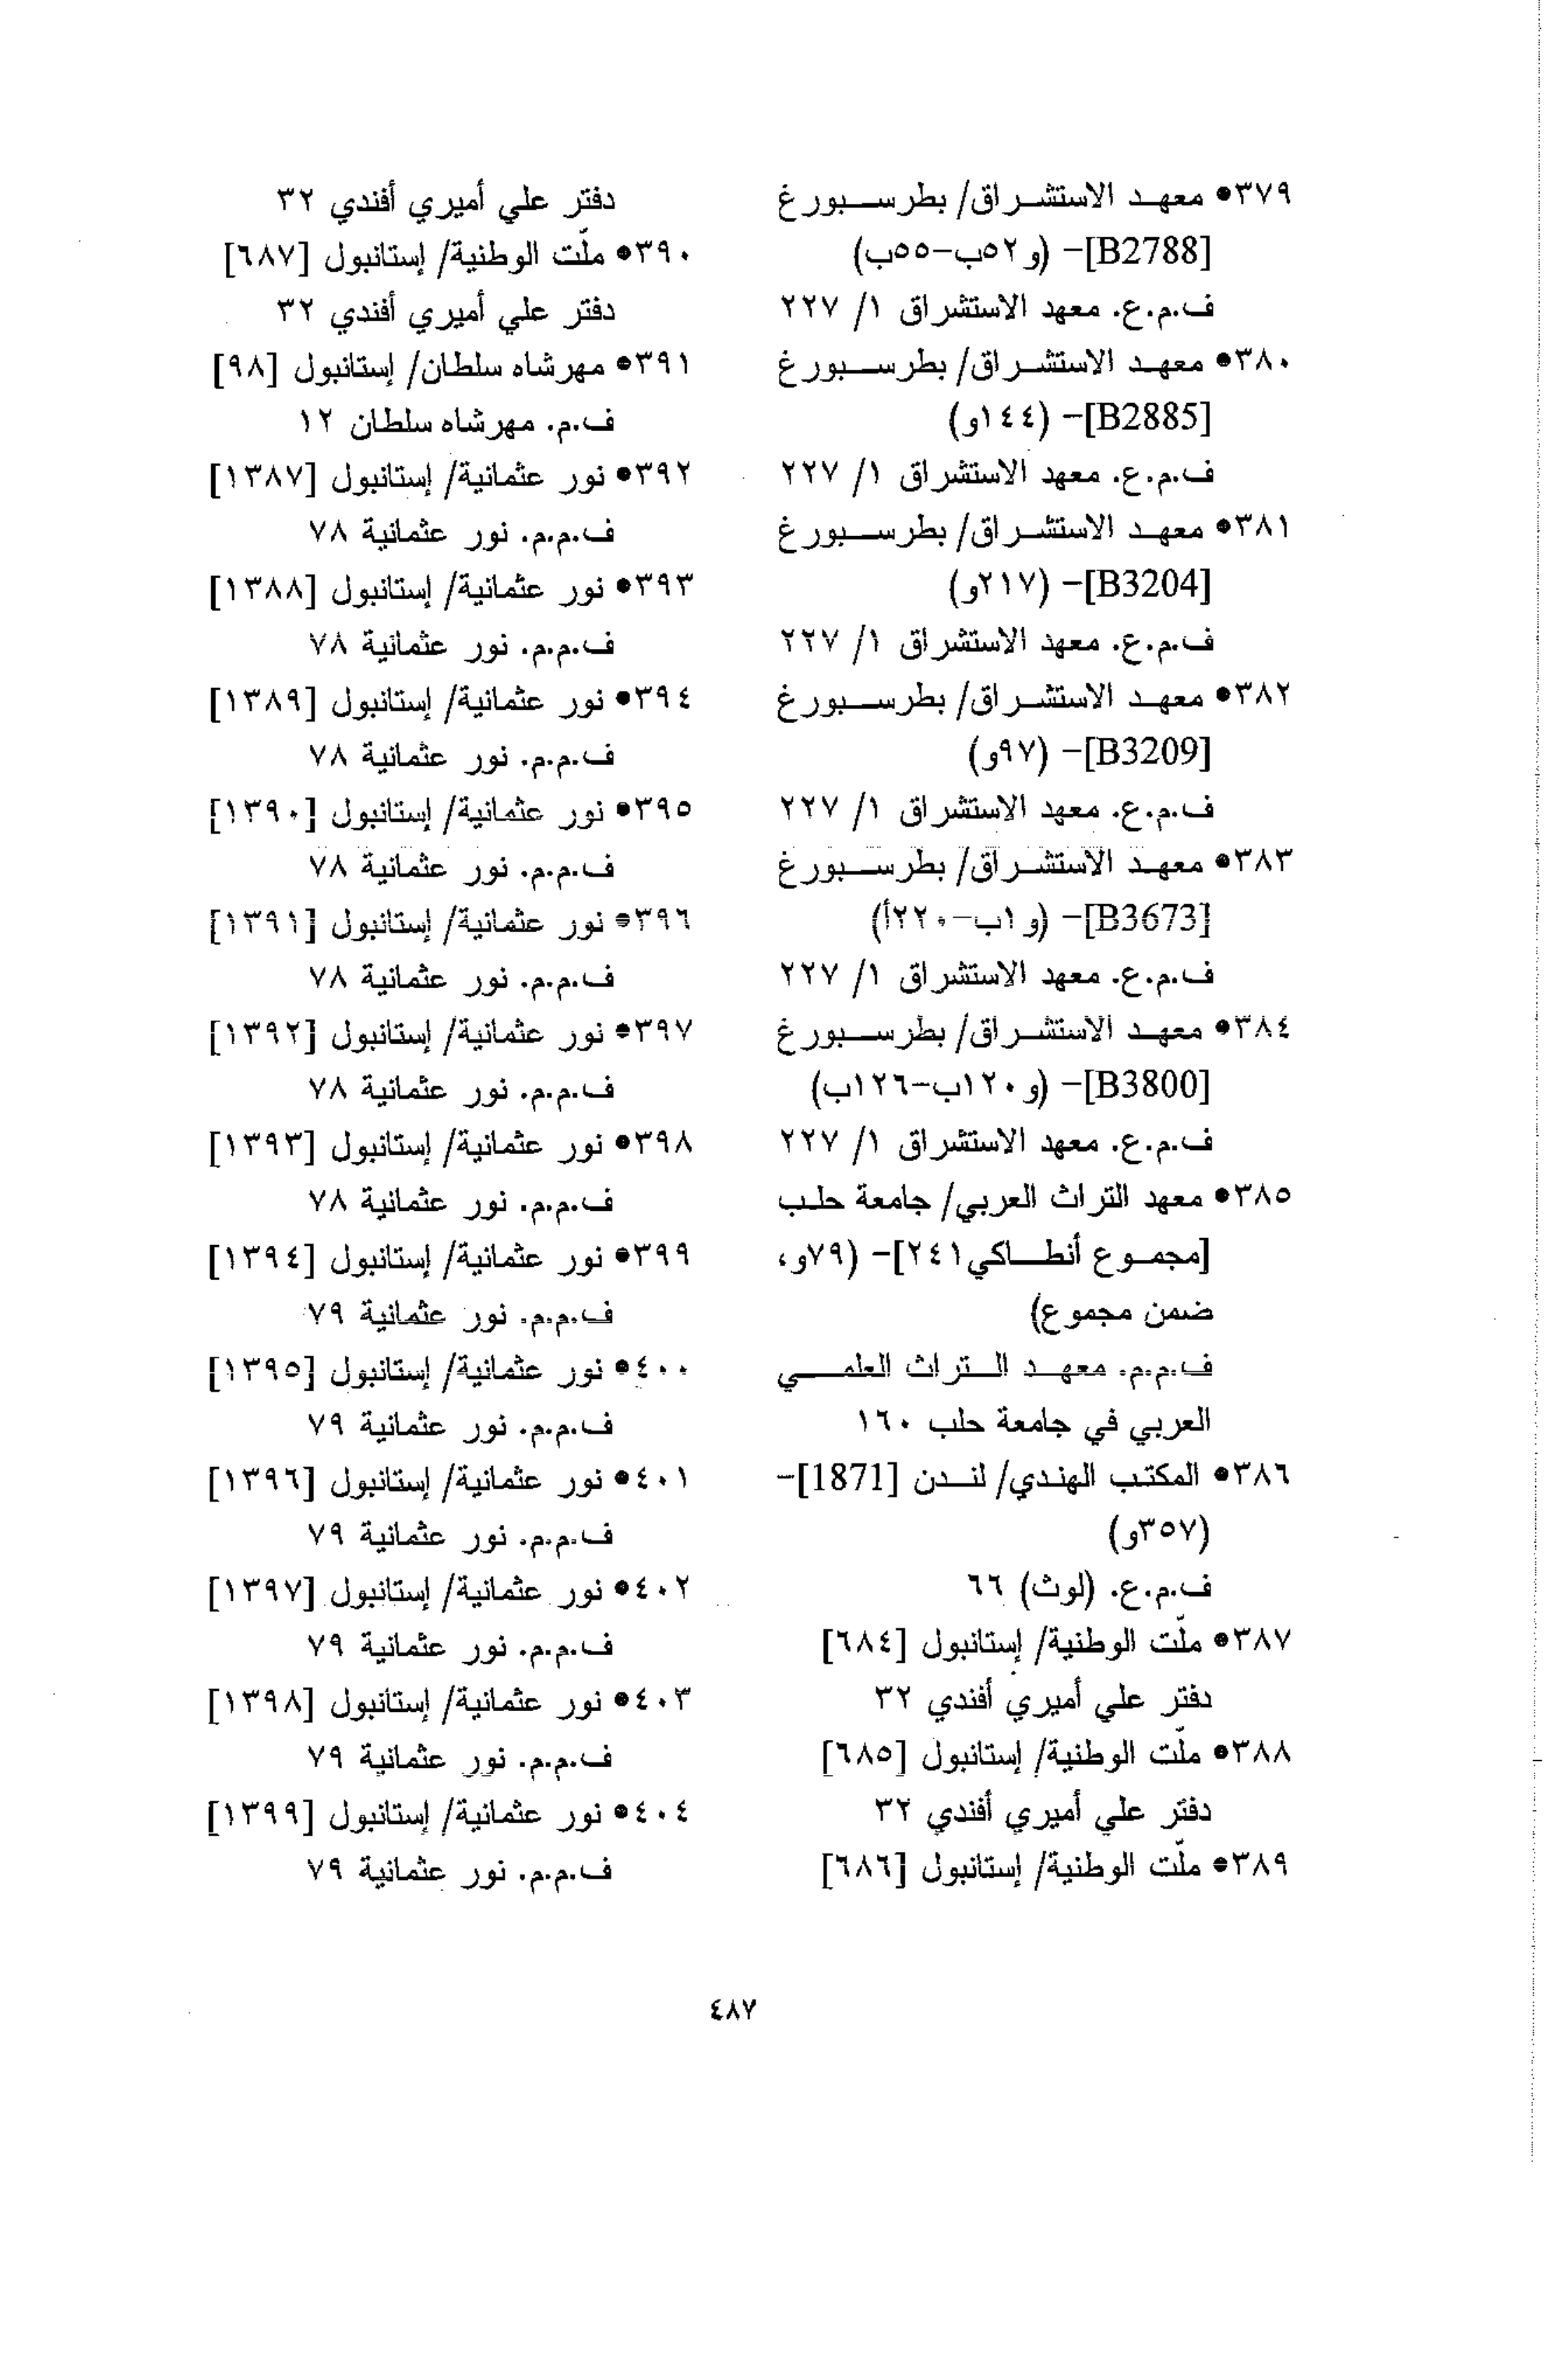 ٣٧٩• معهد الاستشراق/ بطرسبورغ
[B2788]- (و٥٢ب-٥٥ب)
ف.م.ع. معهد الاستشراق ١/ ٢٢٧
٣٨٠• معهد الاستشراق/ بطرسبورغ
[B2885]- (١٤٤و)
ف.م.ع. معهد الاستشراق ١/ ٢٢٧
٣٨١• معهد الاستشراق/ بطرسبورغ
[B3204]- (٢١٧و)
ف.م.ع. معهد الاستشراق ١/ ٢٢٧
٣٨٢• معهد الاستشراق/ بطرسبورغ
[B3209]- (٩٧و)
ف.م.ع. معهد الاستشراق ١/ ٢٢٧
٣٨٣• معهد الاستشراق/ بطرسبورغ
[B3673]- (و١ب-٢٢٠أ)
ف.م.ع. معهد الاستشراق ١/ ٢٢٧
٣٨٤• معهد الاستشراق/ بطرسبورغ
[B3800]- (و١٢٠ب-١٢٦ب)
ف.م.ع. معهد الاستشراق ١/ ٢٢٧
٣٨٥• معهد التراث العربي/ جامعة حلب
[مجموع أنطاكي٢٤١]- (٧٩و،
ضمن مجموع)
ف.م.م. معهد التراث العلمي
العربي في جامعة حلب ١٦٠
٣٨٦• المكتب الهندي/ لندن [1871]-
(٣٥٧و)
ف.م.ع. (لوث) ٦٦
٣٨٧• ملّت الوطنية/ إستانبول [٦٨٤]
دفتر علي أميري أفندي ٣٢
٣٨٨• ملّت الوطنية/ إستانبول [٦٨٥]
دفتر علي أميري أفندي ٣٢
٣٨٩• ملّت الوطنية/ إستانبول [٦٨٦]
دفتر علي أميري أفندي ٣٢
٣٩٠• ملّت الوطنية/ إستانبول [٦٨٧]
دفتر علي أميري أفندي ٣٢
٣٩١• مهرشاه سلطان/ إستانبول [٩٨]
ف.م. مهرشاه سلطان ١٢
٣٩٢• نور عثمانية/ إستانبول [١٣٨٧]
ف.م.م. نور عثمانية ٧٨
٣٩٣• نور عثمانية/ إستانبول [١٣٨٨]
ف.م.م. نور عثمانية ٧٨
٣٩٤• نور عثمانية/ إستانبول [١٣٨٩]
ف.م.م. نور عثمانية ٧٨
٣٩٥• نور عثمانية/ إستانبول [١٣٩٠]
ف.م.م. نور عثمانية ٧٨
٣٩٦• نور عثمانية/ إستانبول [١٣٩١]
ف.م.م. نور عثمانية ٧٨
٣٩٧• نور عثمانية/ إستانبول [١٣٩٢]
ف.م.م. نور عثمانية ٧٨
٣٩٨• نور عثمانية/ إستانبول [١٣٩٣]
ف.م.م. نور عثمانية ٧٨
٣٩٩• نور عثمانية/ إستانبول [١٣٩٤]
ف.م.م. نور عثمانية ٧٩
٤٠٠• نور عثمانية/ إستانبول [١٣٩٥]
ف.م.م. نور عثمانية ٧٩
٤٠١• نور عثمانية/ إستانبول [١٣٩٦]
ف.م.م. نور عثمانية ٧٩
٤٠٢• نور عثمانية/ إستانبول [١٣٩٧]
ف.م.م. نور عثمانية ٧٩
٤٠٣• نور عثمانية/ إستانبول [١٣٩٨]
ف.م.م. نور عثمانية ٧٩
٤٠٤• نور عثمانية/ إستانبول [١٣٩٩]
ف.م.م. نور عثمانية ٧٩
٤٨٧